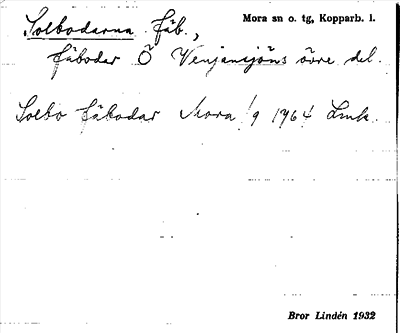 Solbodarna fäb., Mora sn o. tg, Kopparb. l.
fäbodar Ö Venjansjöns övre del.
Solbo fäbodar Mora 1/9 1764 Lmk.
Bror Lindén 1932